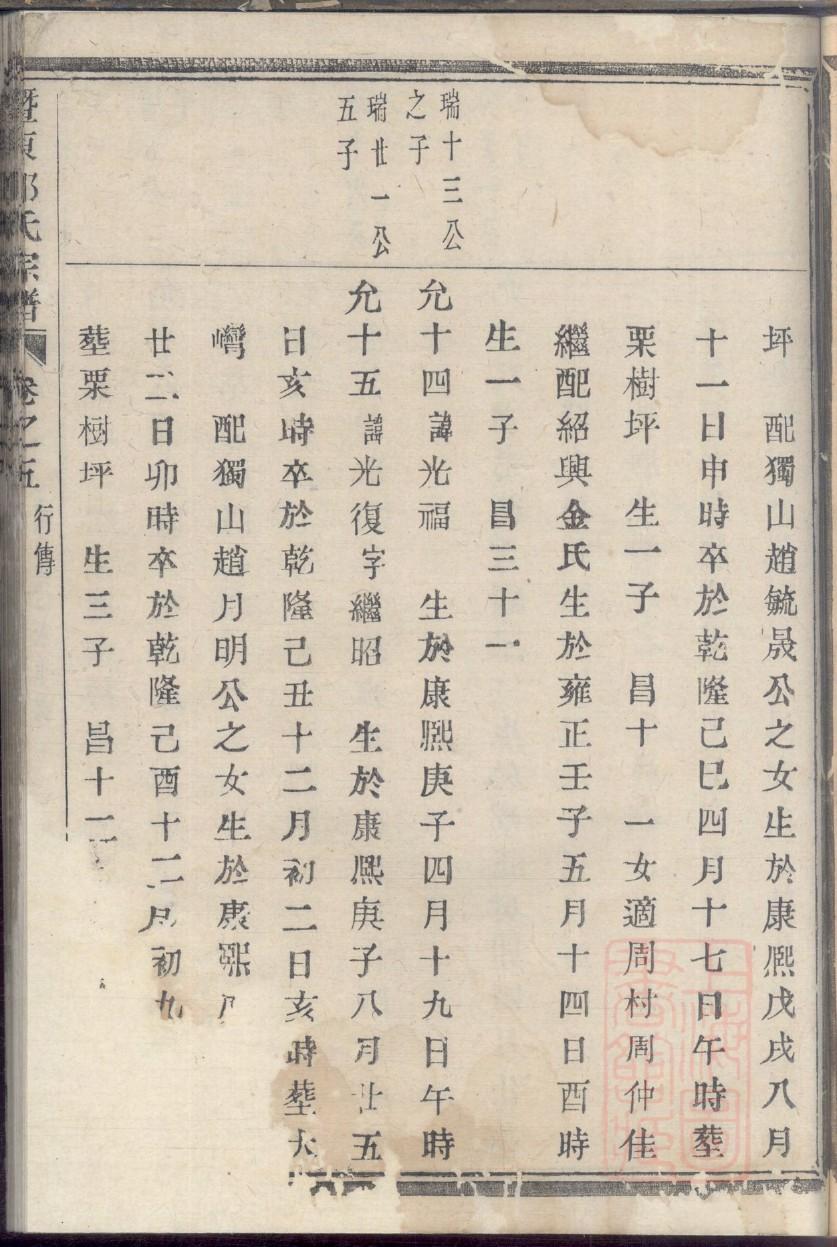 坪　配獨山趙毓晟公之女生於康熈戊戌八月
十一日申時卒於乾隆己巳四月十七日午時塟
栗樹坪　生一子　昌十　一女適周村周仲佳
繼配紹興金氏生於雍正壬子五月十四日酉時
生一子　昌三十一
瑞十三公
之子
允十四諱光福　生於康熈庚子四月十九日午時
瑞廿一公
五子
允十五諱光復字繼昭　生於康熈庚子八月廿五
日亥時卒於乾隆己丑十二月初二日亥時塟大
嶹　配獨山趙月明公之女生於康熈
廿二日卯時卒於乾隆己酉十二月初九
塟栗樹坪　生三子　昌十二
氏宗譜　卷之五　行傳